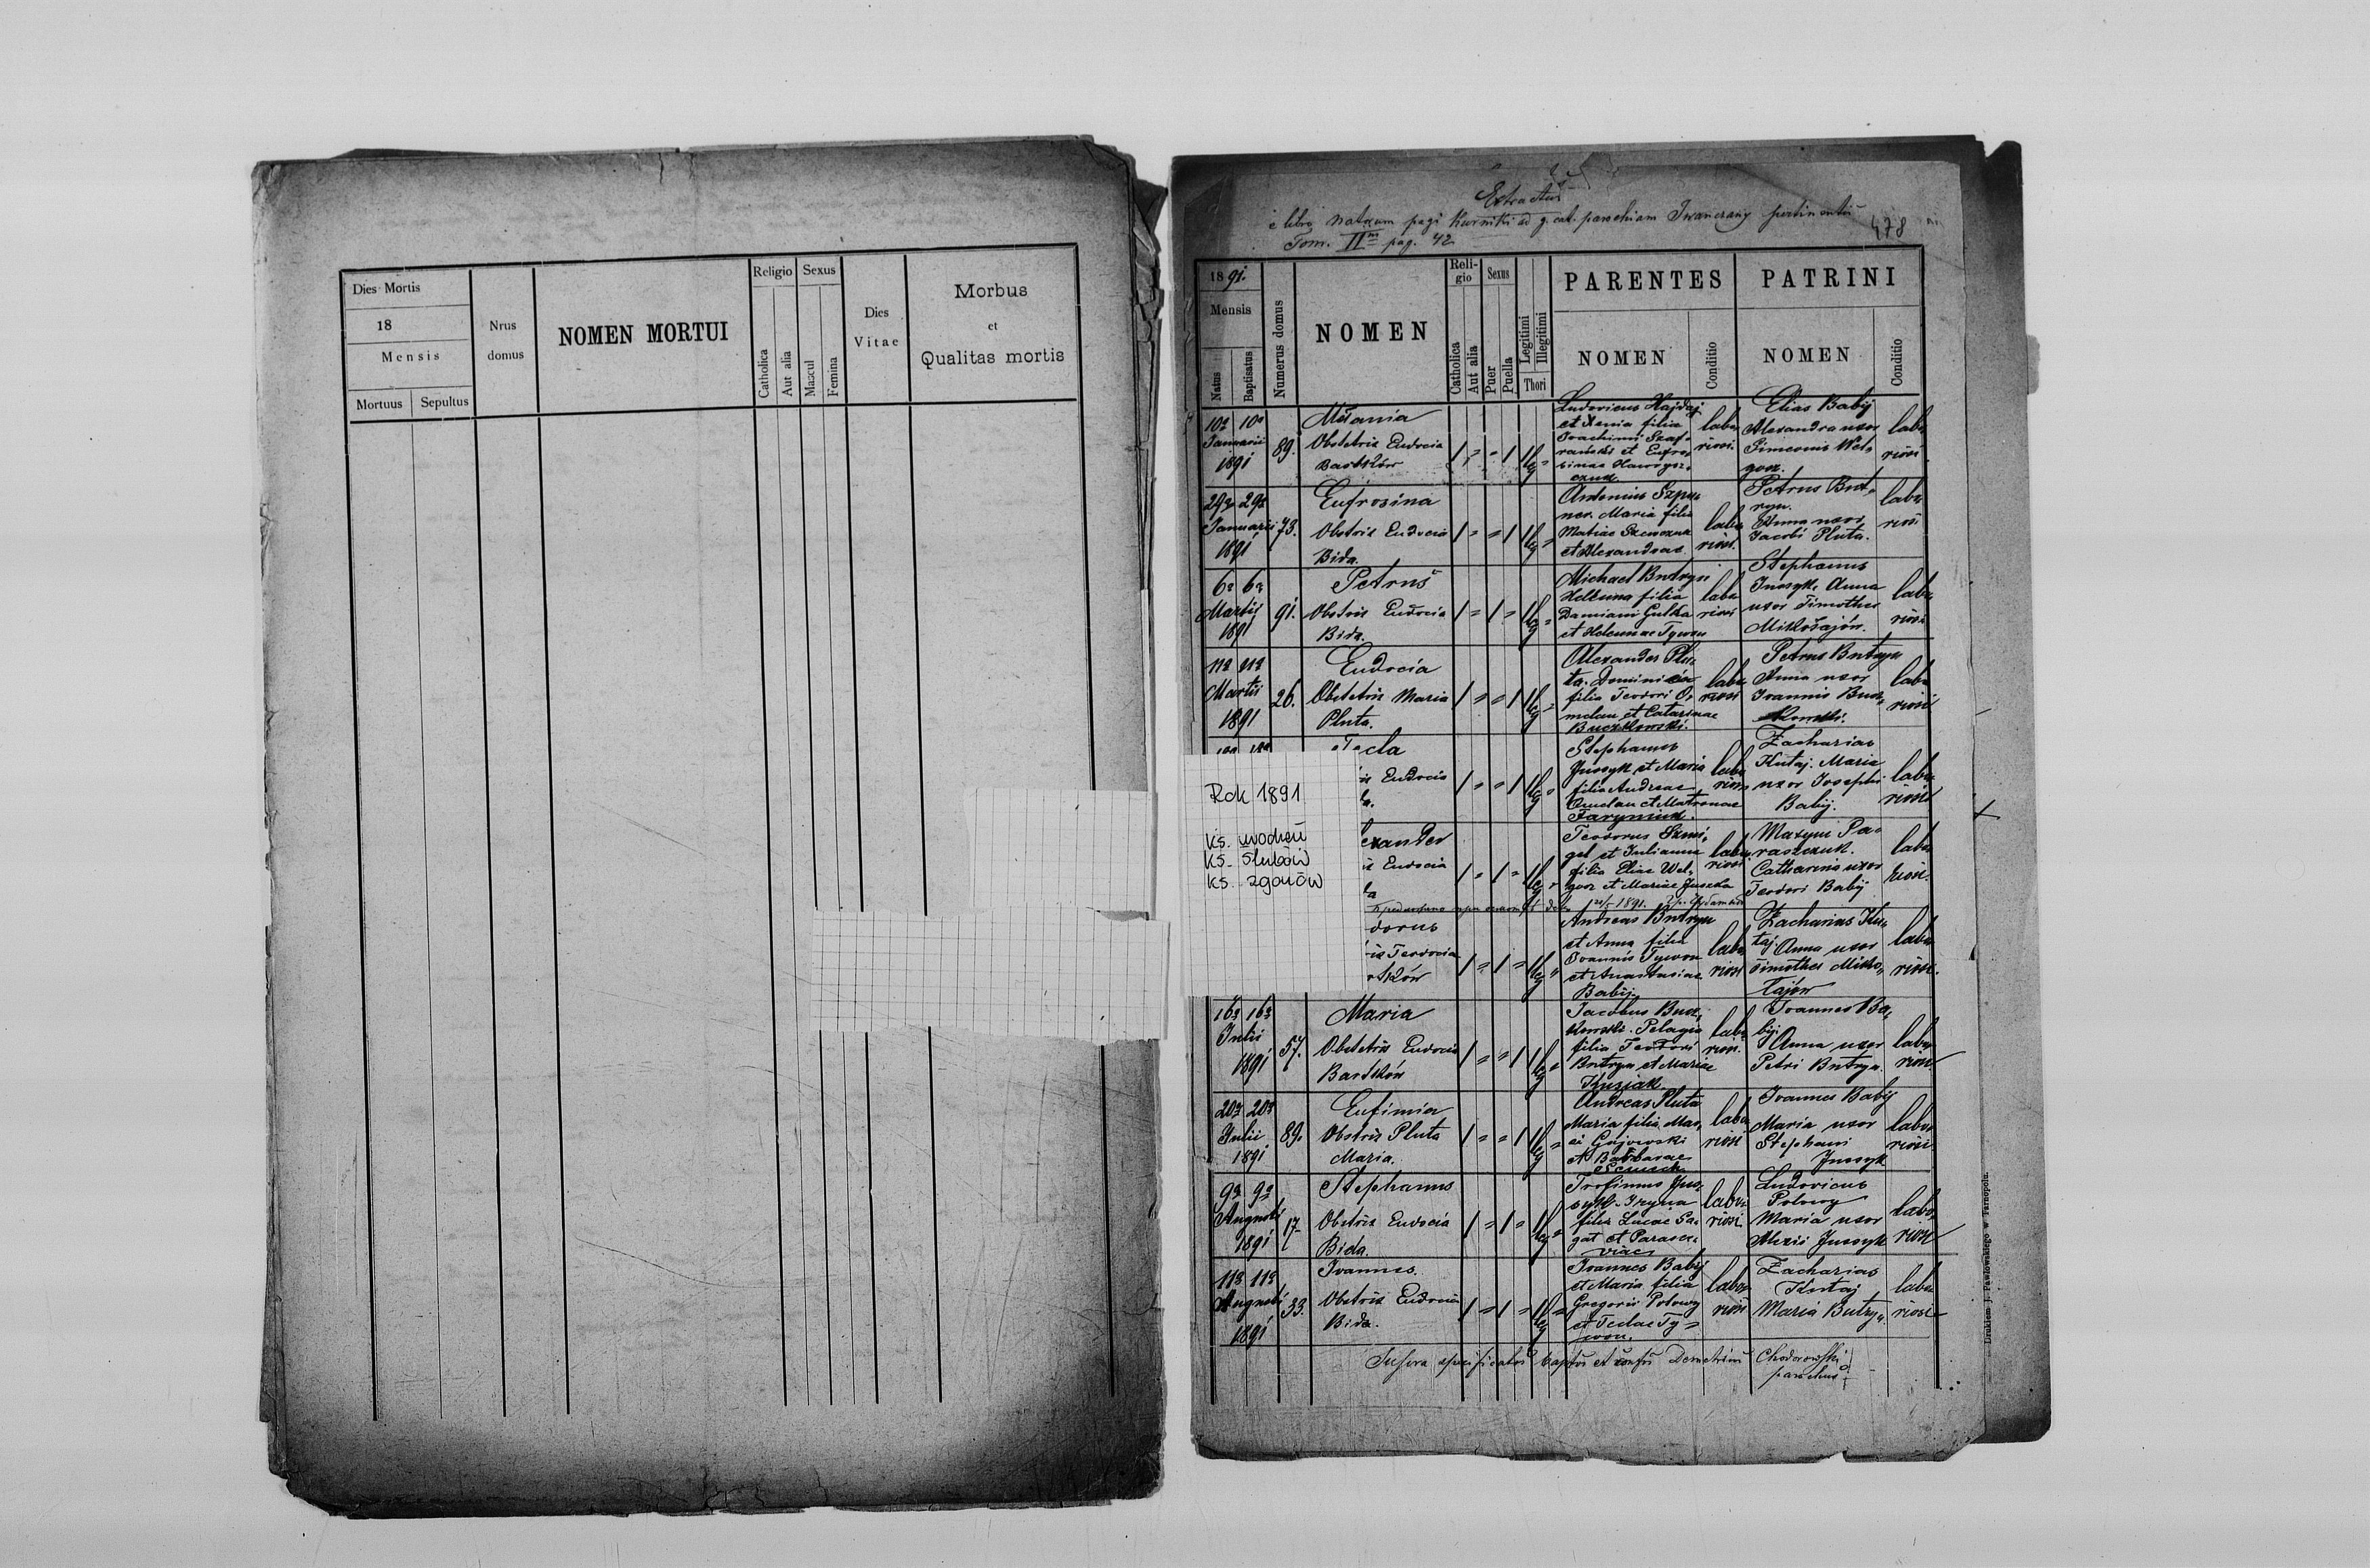 Dies Mortis
18
Mensis
Mortuus
Sepultus
Nrus
domus
NOMEN MORTUI
Religio
Sexus
Catholica
Aut alia
Mascul
Femina
Dies
Vitae
Morbus
et
Qualitas mortis
Extractus
e libro natorum pagi Kurniki ad g. cat. parochiam Iwanczany
Tom. II pag. 42
478
1891.
Mensis
Natus
Baptisatus
Numerus domus
NOMEN
Reli-
gio
Sexus
Catholica
Aut alia
Puer
Puella
Legitimi
Illegitimi
Thori
PARENTES
NOMEN
Conditio
PATRINI
NOMEN
Conditio
10a 10a
Januarii
1891
89.
Mełania
Obstetrix Eudocia
Bartków
Ludovicus Hajdaj
et Xenia filia
Joachimi Szaf-
rański et Eufro-
sinae
labo-
riosi
Elias Babij
Alexandra uxor
Simeonis Wel-
gosz
labo-
riosi
29a 29a
Januarii
1891
73.
Eufrosina
Obstrix Eudocia
Bida.
Antonius Szpu-
nar. Maria filia
Matias
et Alexandrae
labo-
riosi.
Petrus But-
ryn.
Anna uxor
Jacobi Pluta.
labo-
riosi
6a 6a
Martii
1891
91.
Petrus
Obstrix Eudocia
Bida.
Michael Butryn
Helena filia
Damiani Gulka
et Helenae Tywon
labo-
riosi
Stephanus
Jussyk. Anna
uxor Timothei
Mikołajów.
labo-
riosi
11a 11a
Martii
1891
26.
Eudocia
Obstetrix Maria
Pluta.
Alexander Plu-
ta. Dominica
filia Teodori O-
melan et Catarinae
Buczkowski.
labo-
riosi
Petrus Butryn
Anna uxor
Joannis Bucz-
kowski.
labo-
riosi
Tecla
Eudocia
Stephanus
Jussyk et Maria
filia Andreae
Omelan et Matronae
Farymiuk.
labo-
riosi
Zacharias
Kutaj. Maria
uxor Josephi
Babij.
labo-
riosi
Rok 1891
ks. urodzeń
ks. ślubów
ks. zgonów
exander
Eudocia
Teodorus
et Julianna
filia Eliae Wel-
gosz et Mariae
labo-
riosi
Maxym Pa-
raszczuk.
Catharina uxor
Teodori Babij
labo-
riosi.
1891.
dorus
Teodocia
tków
Andreas Butryn
et Anna filia
Joannis Tywon
et Anastasiae
Babij.
labo-
riosi
Zacharias Ku-
taj. Anna uxor
Timothei Miko-
łajów
labo-
riosi.
16a 16a
Julii
1891
57.
Maria
Obstetrix Eudocia
Bartków
Jacobus Bucz-
kowski. Pelagia
filia Teodori
Butryn et Mariae
Kuziak.
labo-
riosi.
Joannes Ba-
bij.
Anna uxor
Petri Butryn.
labo-
riosi
20a 20a
Julii
1891
89.
Eufimia
Obstrix Pluta
Maria.
Andreas Pluta
Maria filia Mat-
ei Gajowski
et Barbarae
labo-
riosi
Joannes Babij
Maria uxor
Stephani
Jussyk
labo-
riosi
9a 9a
Augusti
1891
17.
Stephanus
Obstrix Eudocia
Bida.
Trofimus Jus-
syk. Iryna
filia Lucae Sa-
gat et Parasce-
viae
labo-
riosi
Ludovicus
Połowy
Maria uxor
Alexii Jussyk
labo-
riosi
11a 11a
Augusti
1891
33.
Joannes.
Obstrix Eudocia
Bida.
Joannes Babij
et Maria filia
Gregorii Połowy
et Teclae Ty-
won.
labo-
riosi
Zacharias
Kutaj
Maria Butryn.
labo-
riosi
Supra specificatos bapt. et conf. Demetrius Chodorowski
parochus
Drukiem J. Pawłowskiego w Tarnopolu.